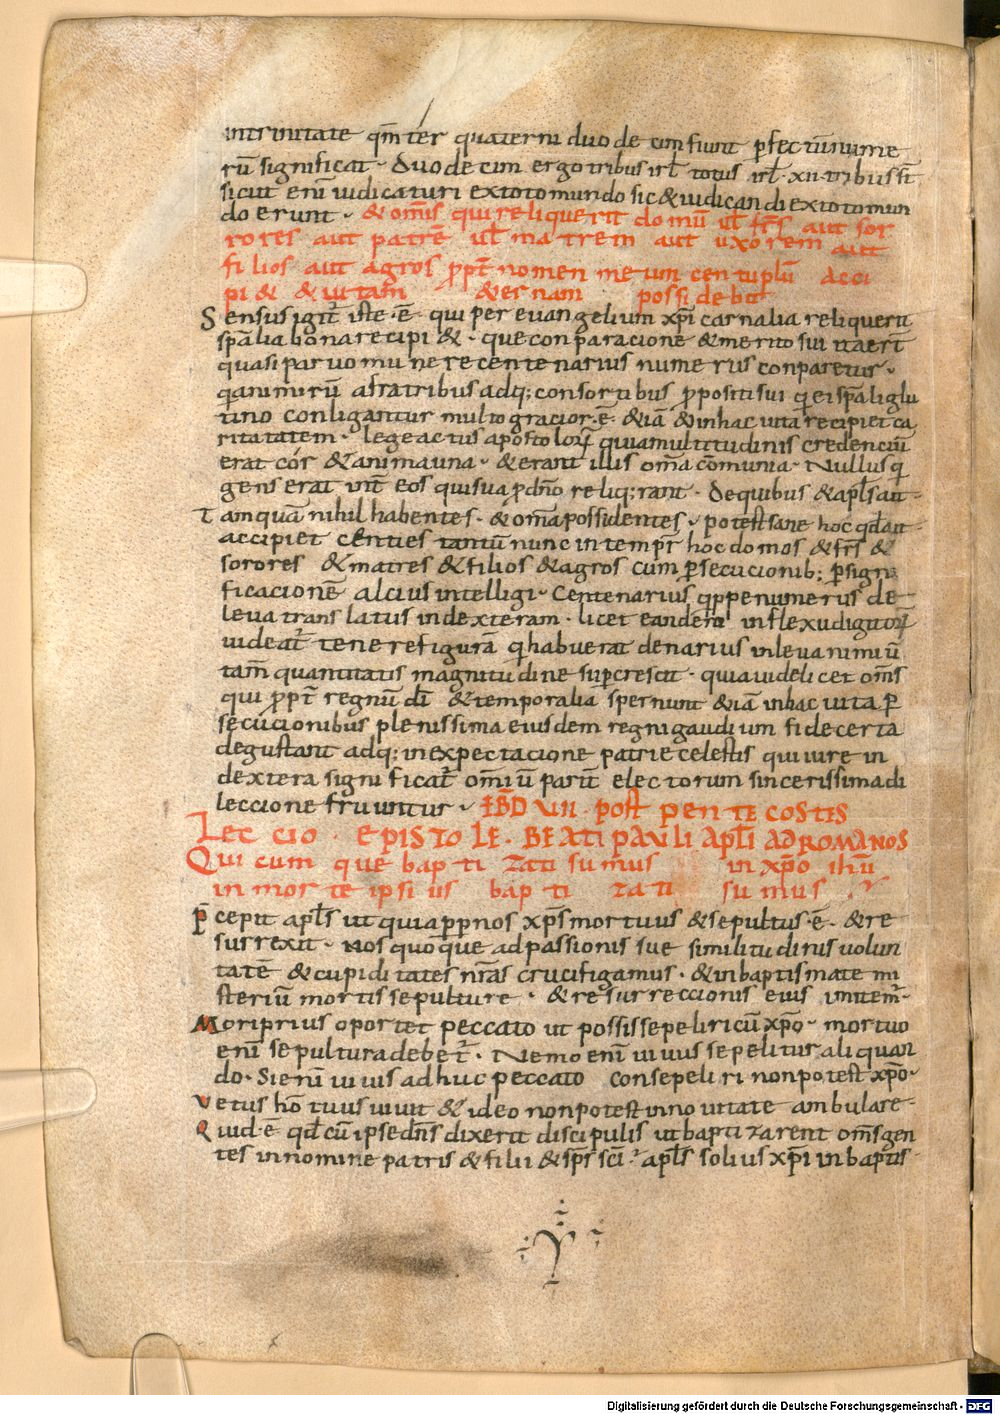 intrinitate qm̄ ter quaterni duodecim fiunt p̄fectū nume
rū significat · Duodecim ergo tribus irl̄ totus irl̄ · xii · tribus st̄
sicut eni᷒ iudicaturi ex toto mundo sic & iudicandi ex toto mun
do erunt · & om̄is qui reliquerit domū ul̄ fr̄s aut sor
rores aut patrē ul̄ matrem aut uxorem aut
filios aut agros p̄pt̄ nomen meum centuplū acci
pi& & uitam̄ &ernam possidebit
Sensus igit̄ iste · ē · qui per euangelium xp̄i carnalia reliquerit
sp̄alia bona recipi& · que conparacione & merito sui ita erit̄
quasi paruo munere centenarius numerus conparetur ·
q̄a nimirū a fratribus adq; consortibus p̄positi sui q̄ ei sp̄ali glu
tino conligantur multo gracior · ē · &iā & in hac uita recipiet ca
ritatem · lege actus apostolor̄ quia multitudinis credenciū
erat cór & anima una · & erant illis om̄a cōmunia · Nullus q̄
gens erat int̄ eos qui sua p̄ dn̄o reliq;rant · De quibus & apl̄s ait ·
Tamquā nihil habentes · & om̄a possidentes · potest sane hoc qd̄ ait
accipiet centies tantū nunc in tempr̄ hoc domos & fr̄s &
sorores & matres & filios & agros cum p̄secucionib; p̄ signi
ficacionē alcius intelligi · Centenarius q̄ppe numerus de
leua translatus in dexteram · licet eandem̄ in flexu digitor̄
uideat̄ tenere figurā q̄ habuerat denarius in leua nimiū
tam̄ quantitatis magnitudine sup̄crescit · quia uidelicet om̄s
qui p̄pt̄ regnū dī & temporalia spernunt &iā in hac uita p̄
secucionibus plenissima eiusdem regni gaudium fide certa
degustant adq; in expectacione patrie celestis qui iure in
dextera significat̄ om̄iū parit̄ electorum sincerissima di
leccione fruuntur · EBD VII · post pentecostes
Leccio · epistole · beati pauli apl̄i ad romanos
Quicumque baptizati sumus in xp̄o ihū
in morte ipsius baptizati sumus
p̄cepit apl̄s ut quia p̄p nos xp̄s mortuus & sepultus · ē · & re
surrexit · nos quoque ad passionis sue similitudinis uolun
tatē & cupiditates nr̄as crucifigamus · & in baptismate mi
steriū mortis sepulture · & resurreccionis eius imitem̄ ·
Moriprius oportet peccato ut possis sepeliri cū xp̄o · mortuo
enī sepultura debet̄ · Nemo enī uiuus sepelitur aliquan
do · Si enī uiuis adhuc peccato consepeliri non potest xp̄o ·
Vetus hō tuus uiuit & ideo non potest in nouitate ambulare ·
Quid · ē · qd̄ cū ipse dn̄s dixerit discipulis ut baptizarent om̄s gen
tes in nomine patris & filii & sp̄s sc̄i apl̄s solius xp̄i in baptis
Digitalisierung gefördert durch die Deutsche Forschungsgemeinschaft - DFG